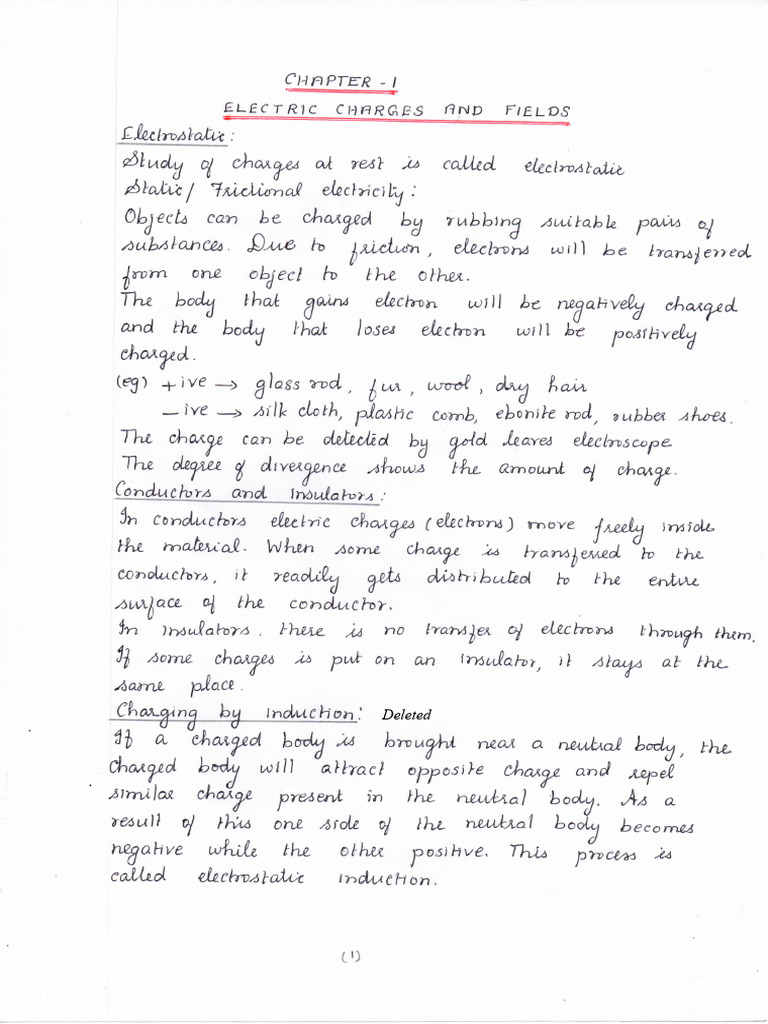 CHAPTER - 1
ELECTRIC CHARGES AND FIELDS
Electrostatic:
Study of charges at rest is called electrostatic
Static/ Frictional electricity:
Objects can be charged by rubbing suitable pairs of
substances. Due to friction, electrons will be transferred
from one object to the other.
The body that gains electron will be negatively charged
and the body that loses electron will be positively
charged.
(eg) +ive → glass rod, fur, wool, dry hair
-ive → silk cloth, plastic comb, ebonite rod, rubber shoes.
The charge can be detected by gold leaves electroscope
The degree of divergence shows the amount of charge.
Conductors and insulators:
In conductors electric charges (electrons) move freely inside
the material. When some charge is transferred to the
conductors, it readily gets distributed to the entire
surface of the conductor.
In insulators. there is no transfer of electrons through them.
If some charges is put on an insulator, it stays at the
same place.
Charging by induction: Deleted
If a charged body is brought near a neutral body, the
charged body will attract opposite charge and repel
similar charge present in the neutral body. As a
result of this one side of the neutral body becomes
negative while the other positive. This process is
called electrostatic induction.
(1)